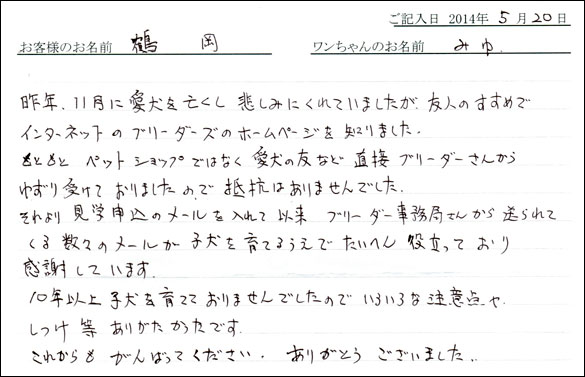 ご記入日 2014年 5月20日
お客様のお名前 鶴岡 ワンちゃんのお名前 みゆ
昨年、11月に愛犬を亡くし 悲しみにくれていましたが、友人のすすめで
インターネットのブリーダーズのホームページを知りました。
もともと ペットショップではなく 愛犬の友など 直接ブリーダーさんから
ゆずり受けておりましたので 抵抗はありませんでした。
それより 見学申込のメールを入れて以来 ブリーダー事務局さんから送られて
くる数々のメールが子犬を育てるうえでたいへん役立っており
感謝しています。
10年以上子犬を育てておりませんでしたのでいろいろな注意点や
しつけ等 ありがたかったです。
これからも がんばってください。ありがとう ございました。